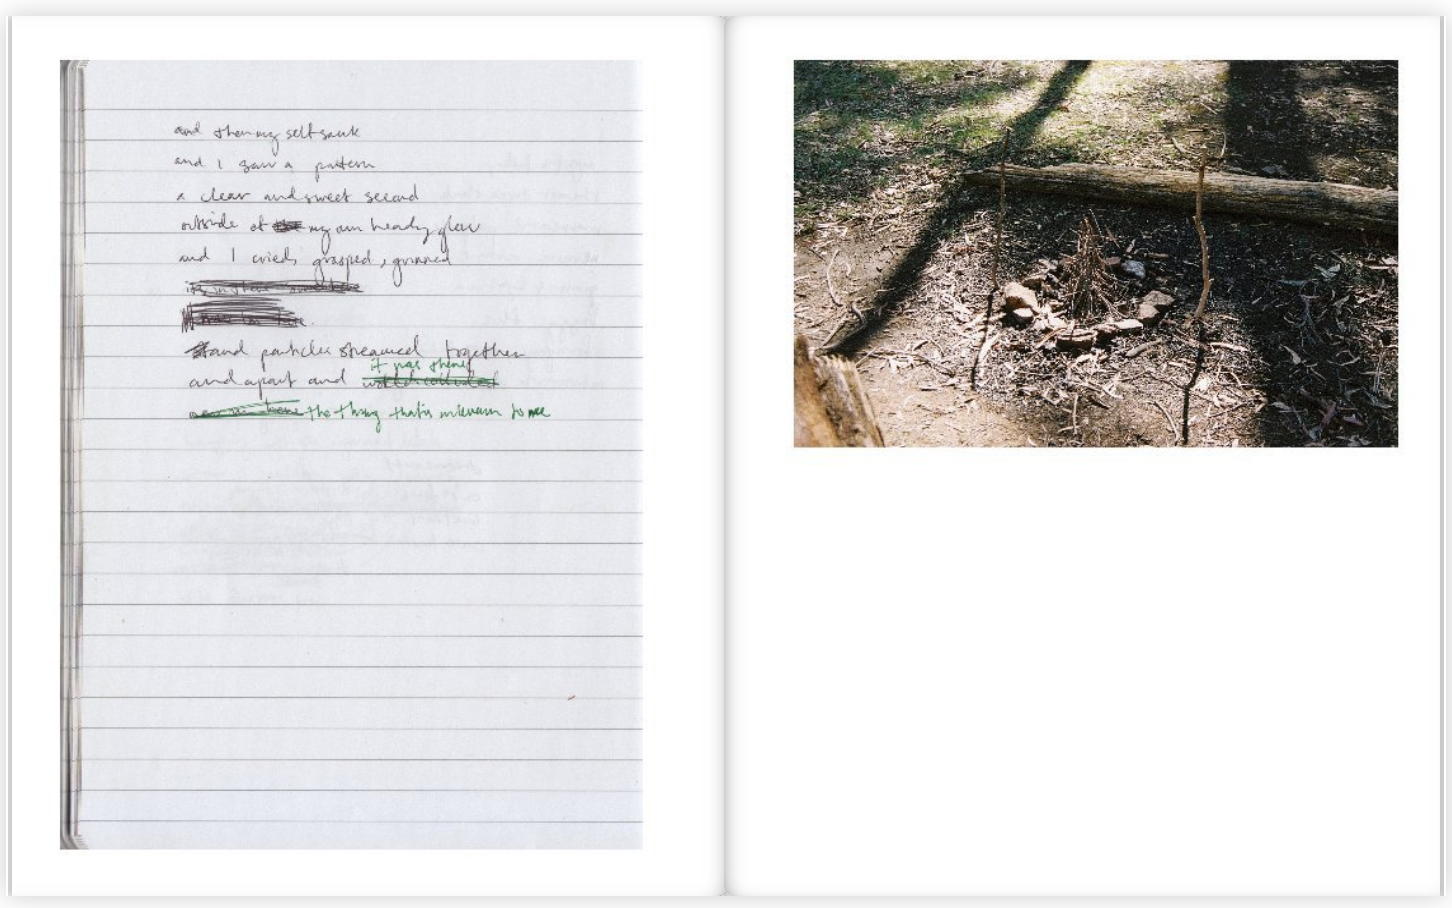 and then my self sank
and I saw a pattern
a clear and sweet second
outside of my own heady glow
and I cried, grasped, grinned
and particles streamed together
it was there
and apart and
the thing that's to me